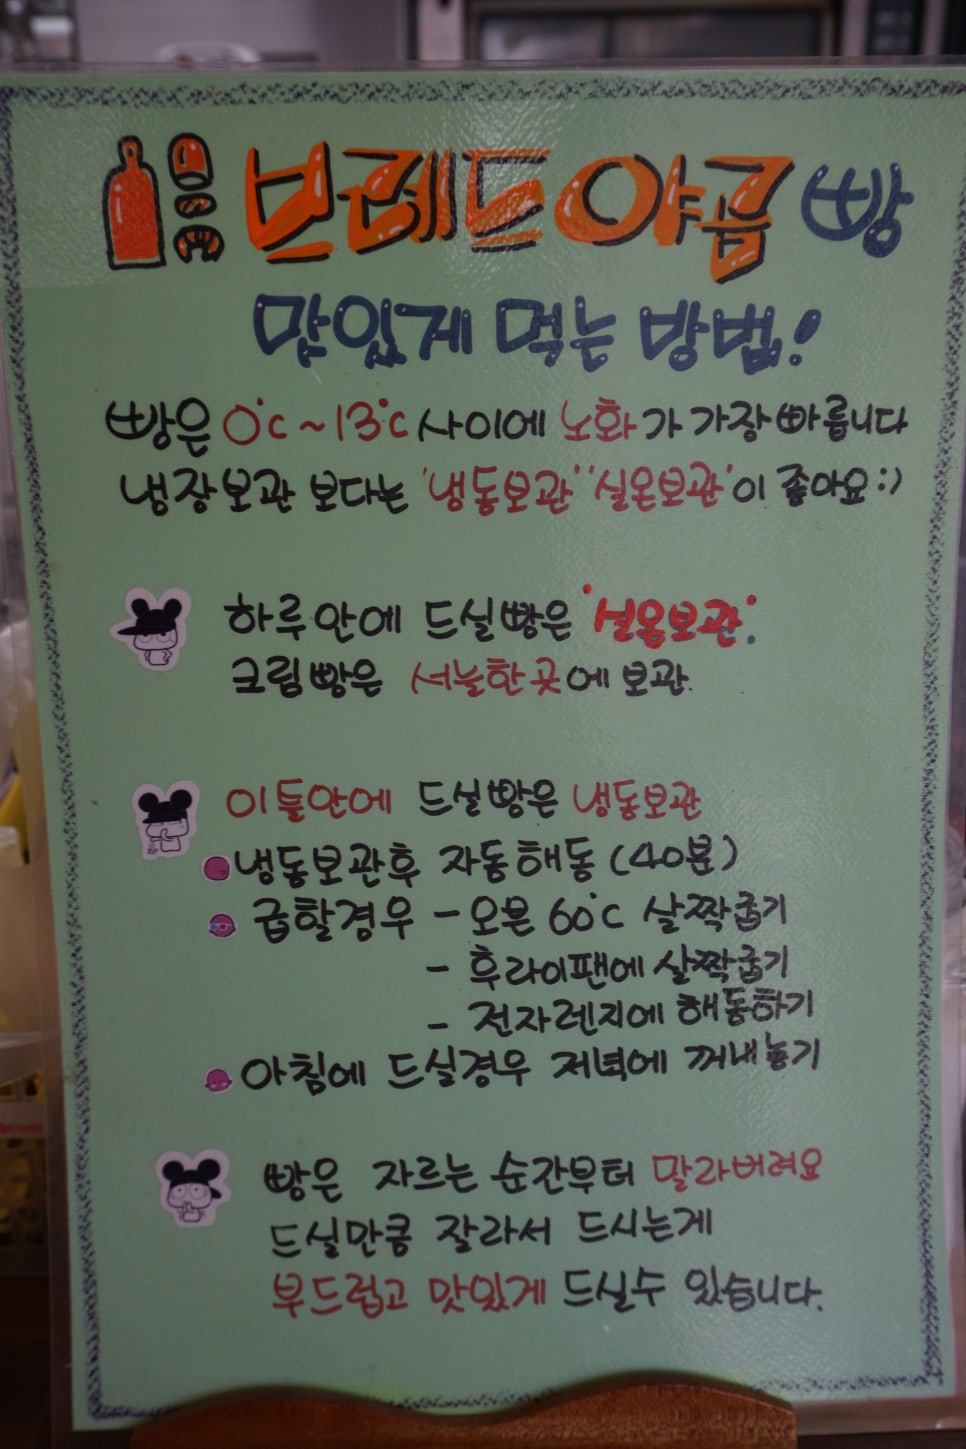 브레드야콤 빵
맛있게 먹는 방법!
빵은 0℃~13℃ 사이에 노화가 가장 빠릅니다
냉장보관 보다는 '냉동보관' '실온보관'이 좋아요:)
하루안에 드실빵은 '실온보관'.
크림빵은 서늘한곳에 보관.
이틀안에 드실빵은 냉동보관
냉동보관후 자동해동 (40분)
급할경우 - 오븐 60℃ 살짝굽기
- 후라이팬에 살짝굽기
- 전자렌지에 해동하기
아침에 드실경우 저녁에 꺼내놓기
빵은 자르는 순간부터 말라버려요
드실만큼 잘라서 드시는게
부드럽고 맛있게 드실수 있습니다.